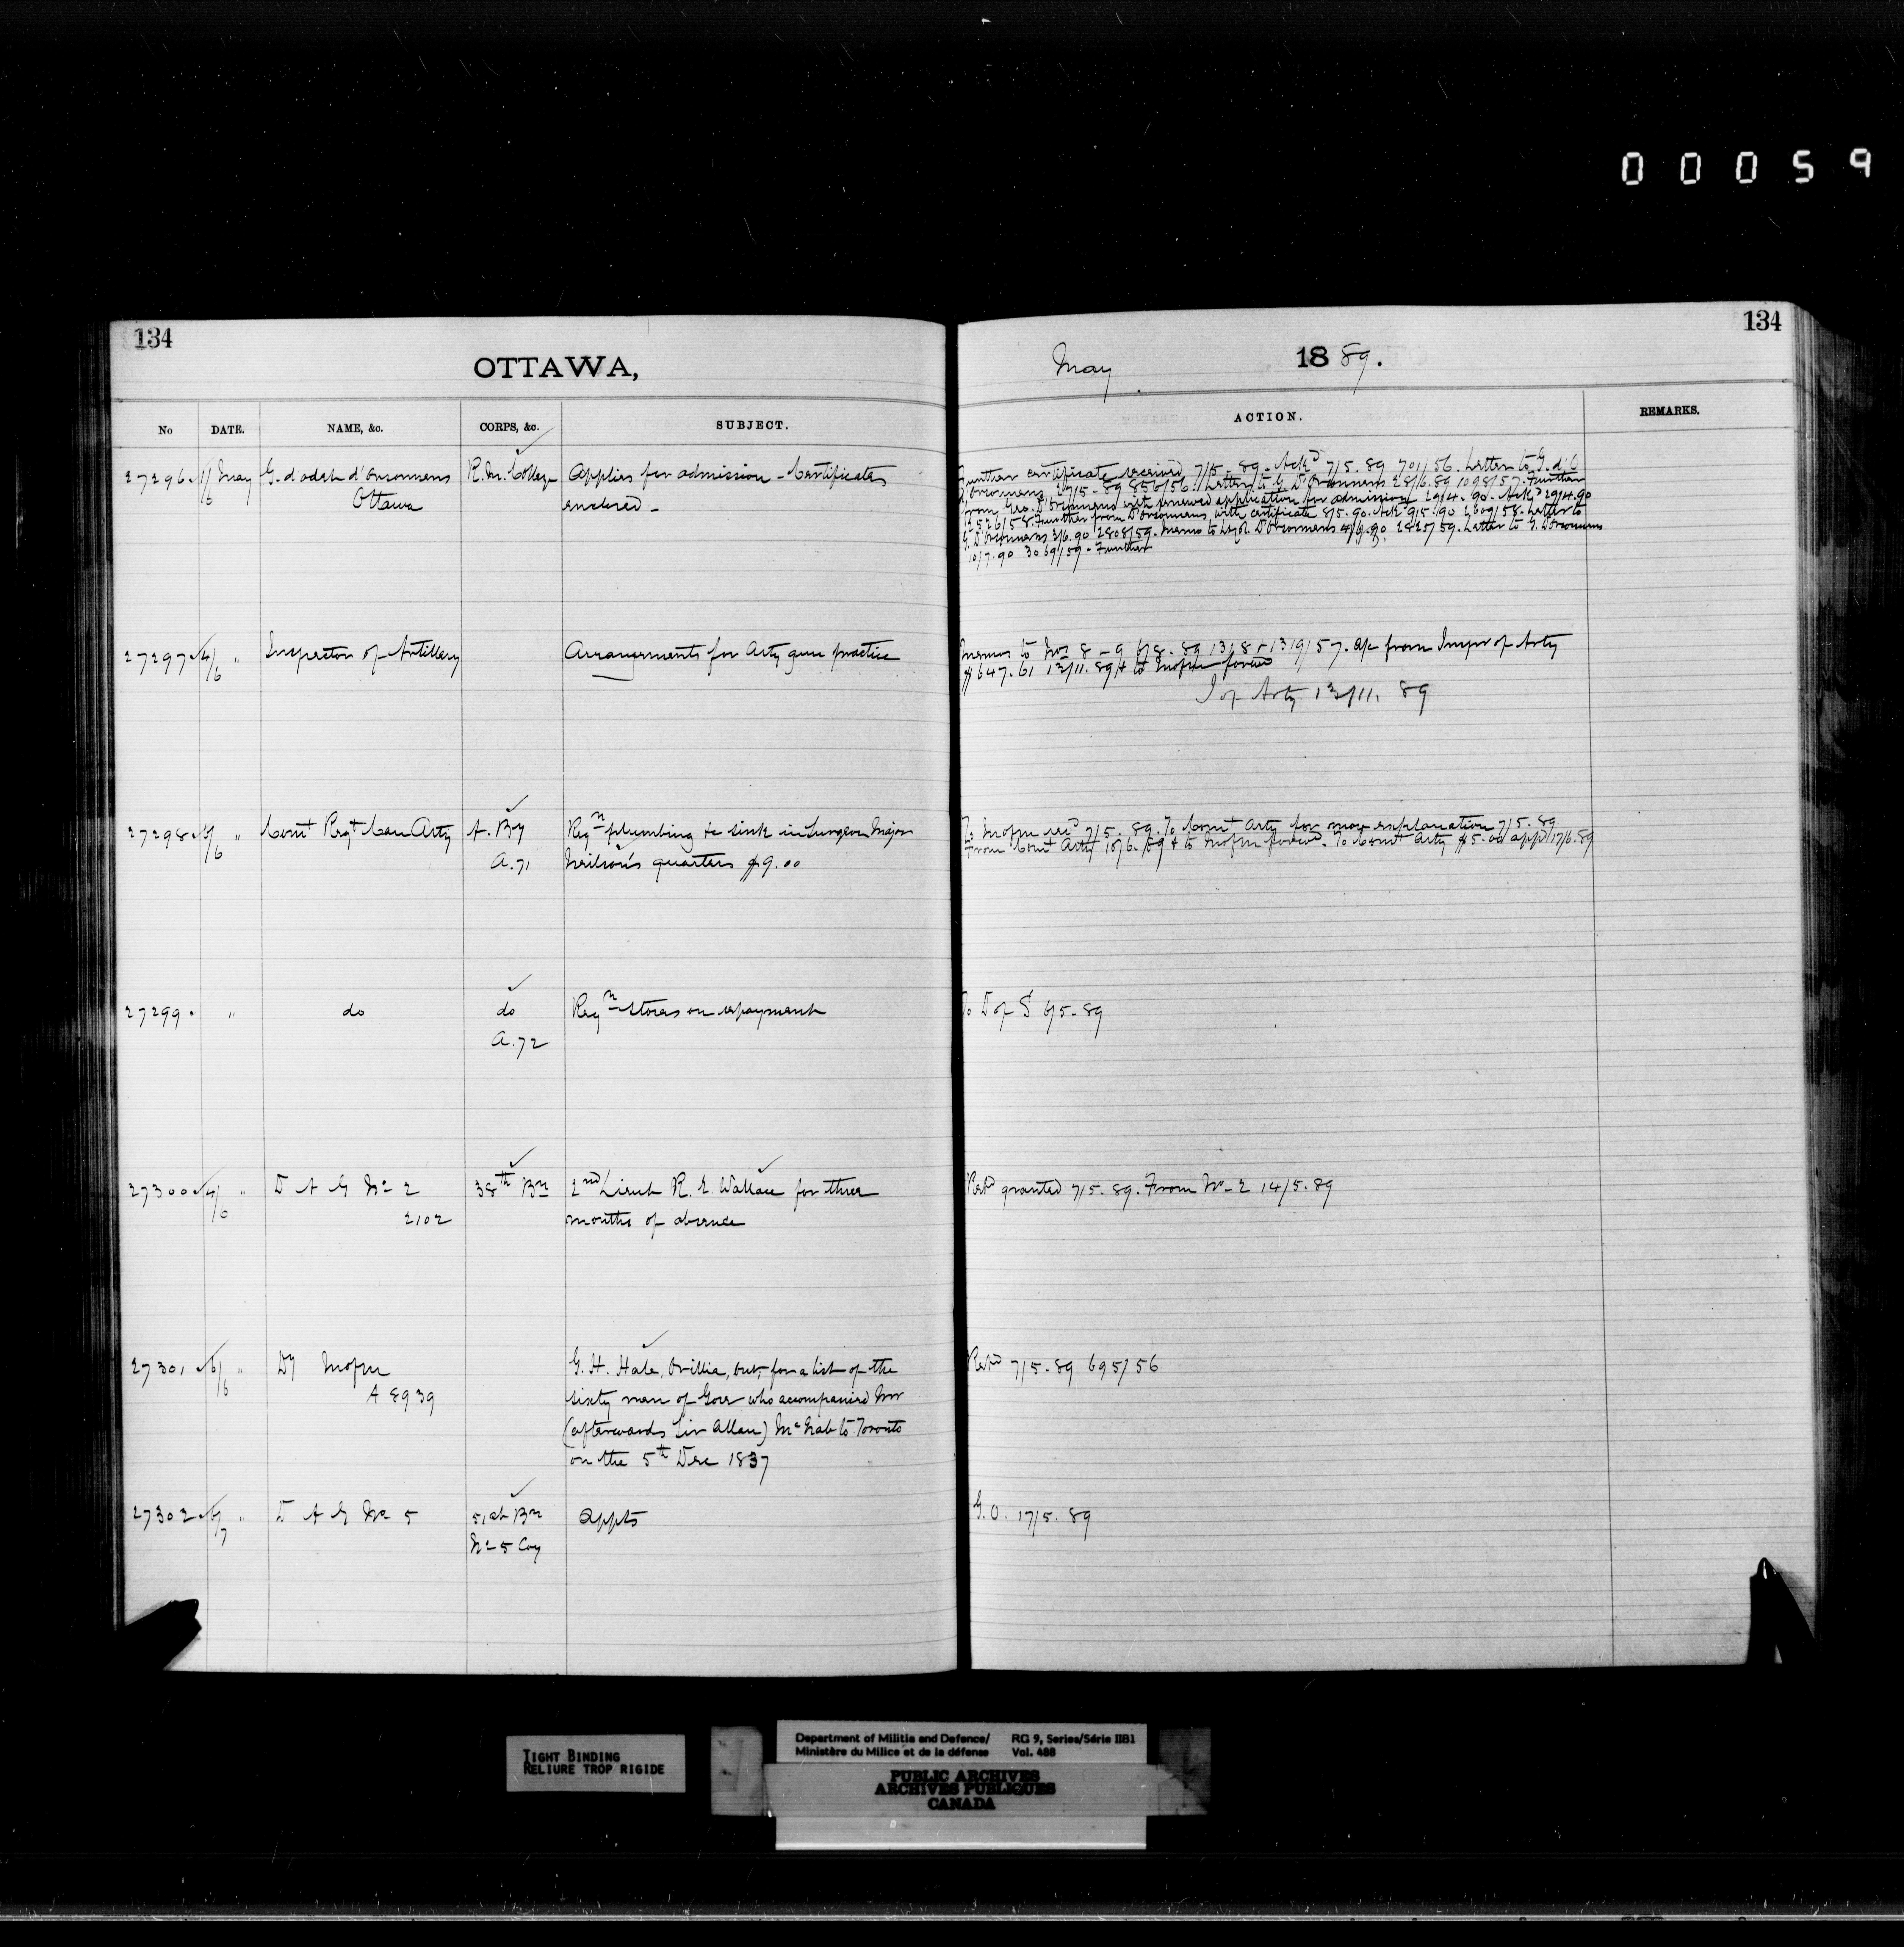 00059
134
OTTAWA,
No DATE. NAME, &c. CORPS, &c. SUBJECT.
27296 1/6 May G. d'odet d'Orsonnens R. M. College Applies for admission - Certificates
Ottawa enclosed -
27297 4/6 " Inspector of Artillery Arrangements for Arty gun practice
27298 6/6 " Comt Regt Can Arty A. By Reqn plumbing to sink in Surgeon Major
A.71 Neilson's quarters $9.00
27299 " do do Reqn Stores on repayment
A.72
27300 4/6 " D A G No 2 38th Bn 2nd Lieut R. E. Wallace for three
2102 months of absence
27301 6/6 " Dy Mofm G. H. Hale, Orillia, Ont, for a list of the
A 8939 sixty men of Gore who accompanied Mr
(afterwards Sir Allan) McNab to Toronto
on the 5th Dec 1837
27302 6/7 " D A G No 5 51st Bn Appts
No 5 Coy
134
May 1889.
ACTION. REMARKS.
Further certificate received 7/5.89. Ackd 7/5.89 701/56. Letter to G. d'O
D'Orsonnens 27/5.89 856/56. Letter to G. D'Orsonnens 28/6.89 1098/57. Further
from Geo. D'Orsonnens with renewed application for admission 29/4.90. Ackd 29/4.90
2526/58. Further from D'Orsonnens with certificate 8/5.90. Ack 9/5.90 2609/58. Letter to
G. D'Orsonnens 3/6.90 2808/59. Memo to Lt Col. D'Orsonnens 4/6.90. 2825/59. Letter to G. D'Orsonnens
10/7.90 3069/59. Further
Memos to Nos 8 - 9 6/8.89 1318 + 1319/57. A/c from Inspr of Arty
$647.61 13/11.89 & to Mofm forwd
I of Arty 13/11.89
To Mofm recd 7/5.89. To Comt Arty for more explanation 7/5.89
From Comt Arty 10/6.89 & to Mofm forwd. To Comt Arty $5.00 appd 17/6.89
To D of S 6/5.89
Retd granted 7/5.89. From No 2 14/5.89
Retd 7/5.89 695/56
G. O. 17/5.89
TIGHT BINDING
RELIURE TROP RIGIDE
Department of Militia and Defence/ RG 9, Series/Série IIB1
Ministère du Milice et de la défense Vol. 488
PUBLIC ARCHIVES
ARCHIVES PUBLIQUES
CANADA